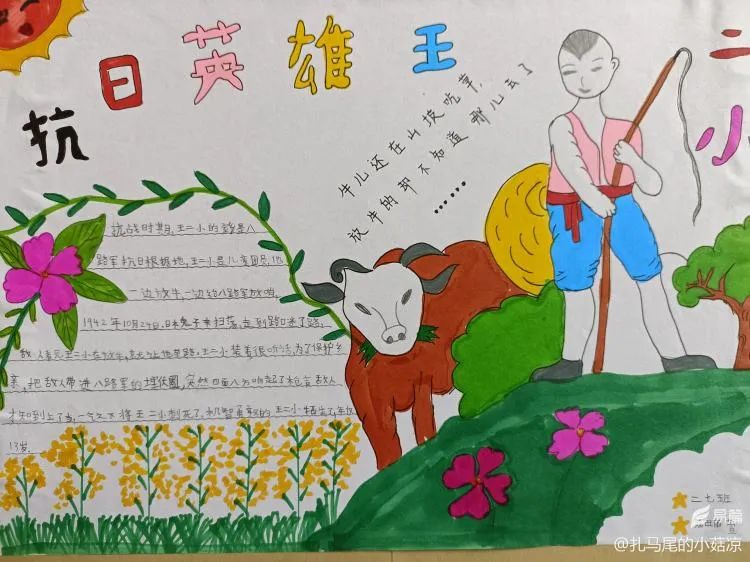 抗日英雄王二小
牛儿还在山坡吃草,
放牛的却不知道哪儿去了
……
抗战时期,王二小的家是八
路军抗日根据地,王二小是儿童团员,他
一边放牛,一边给八路军放哨。
1942年10月24日,日本鬼子来扫荡,走到路口迷了路。
敌人看见王二小在放牛,就让他带路,王二小装着很听话,为了保护乡
亲,把敌人带进八路军的埋伏圈,突然四面八方响起了枪声,敌人
才知到上了当,一气之下将王二小刺死了,机智勇敢的王二小牺牲了,年仅
13岁。
二七班
易篇
@扎马尾的小菇凉